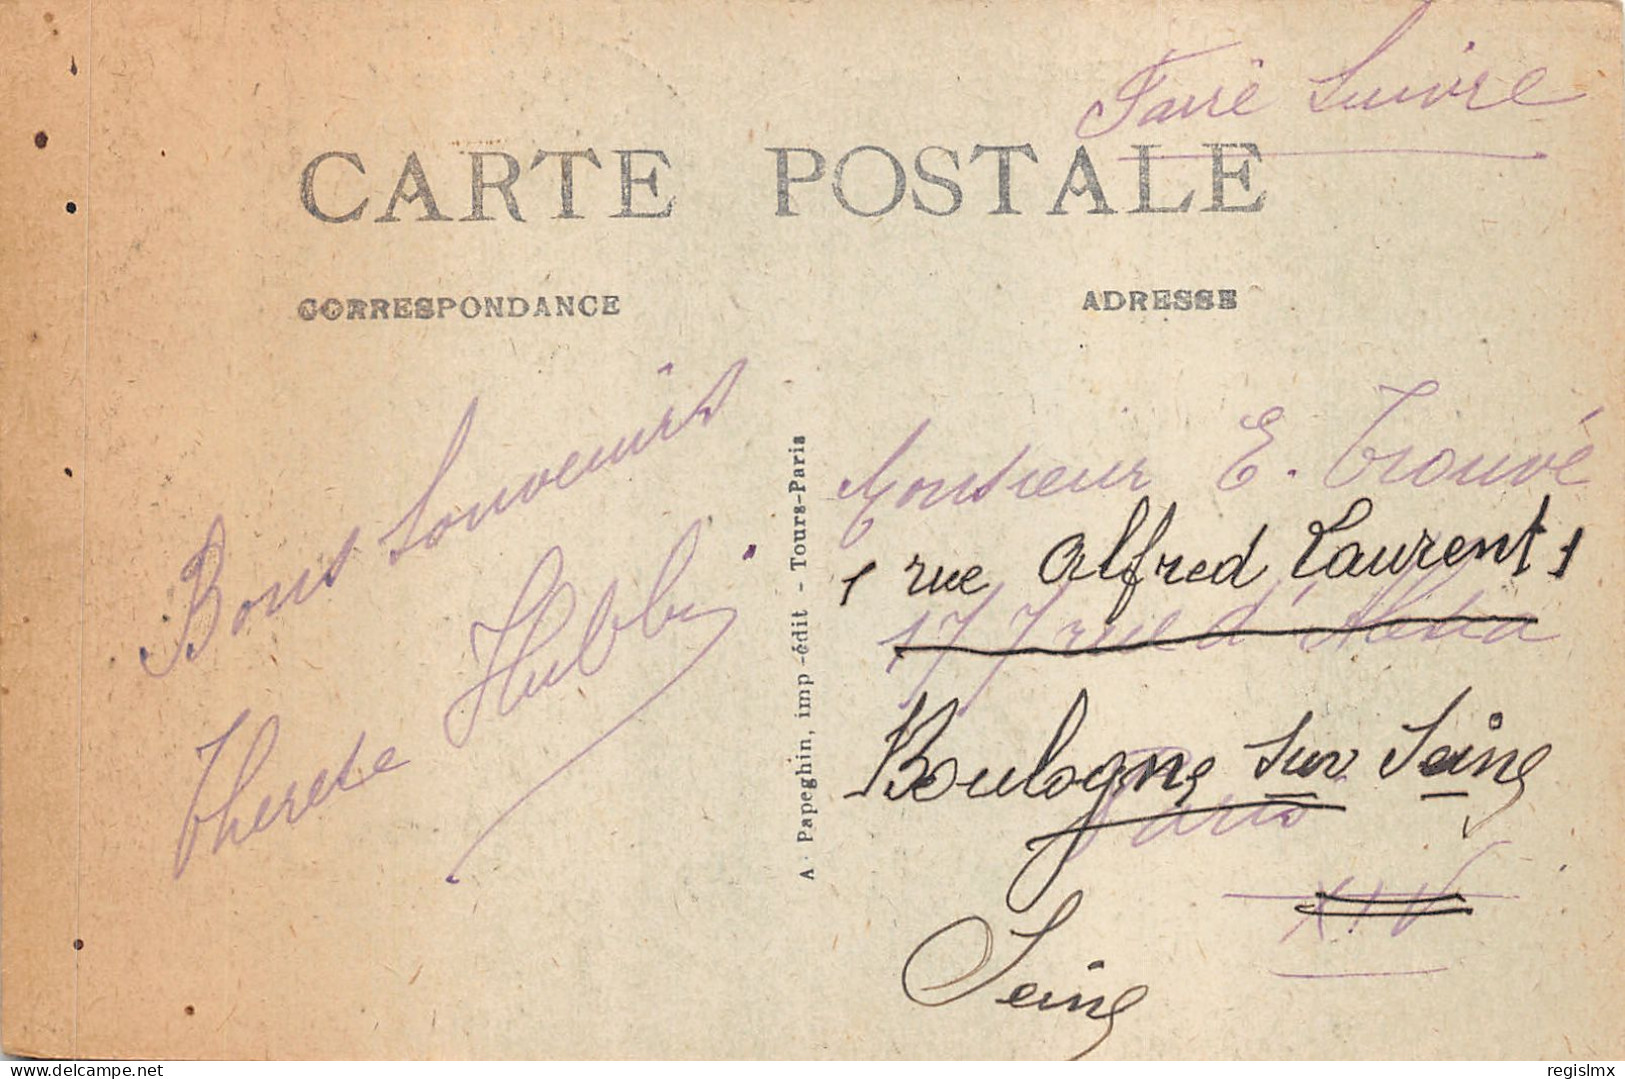 Faire Suivre
CARTE POSTALE
CORRESPONDANCE
ADRESSE
Bons Souvenirs
Therese Hubby
A. Papeghin, imp-édit - Tours-Paris
Monsieur E. Trouvé
1 rue Alfred Laurent 1
177 rue d'Alésia
Boulogne sur Seine
Paris
XIV
Seine
delcampe.net
regislmx